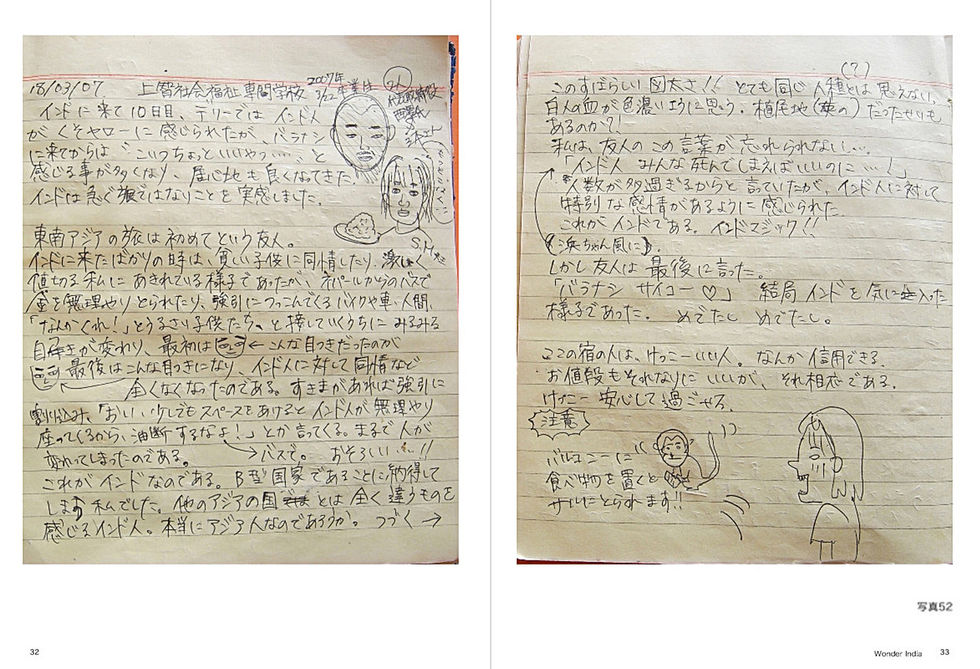 18/03/07 上智社会福祉専門学校 2007年 3/22 卒業生
インドに来て10日目、デリーでは インド人
がくそヤローに感じられたが、バラナシ
に来てからは“こいつちょっといいやつ…、と
感じる事が多くなり、居心地も良くなってきた。
インドは急ぐ旅ではないことを実感しました。
S.H
東南アジアの旅は初めてという友人。
インドに来たばかりの時は、貧しい子供に同情したり、激しく
値切る私にあきれている様子であったが、ネパールからのバスで
金を無理やりとられたり、強引につっこんでくるバイクや車・人間、
「なんかくれ!」とうるさい子供たち、と接していくうちに みるみる
目つきが変わり、最初は ←こんな目つきだったのが
最後はこんな目つきになり、インド人に対して同情など
全くなくなったのである。すきまがあれば強引に
割り込み、「おい、少しでもスペースをあけると インド人が無理やり
座ってくるから、油断するなよ!」とか言ってくる。まるで人が
変わってしまったのである。 →バスで。 おそろしい…!!
これが インドなのである。B型国家であることに納得して
しまう私でした。他のアジアの国とは 全く違うものを
感じるインド人。本当にアジア人なのであろうか。 つづく →
32
このすばらしい図太さ!! とても同じ人種とは思えない。(?)
白人の血が色濃いように思う。植民地(英の)だったせいも
あるのか?!
私は、友人の この言葉が忘れられない…。
「インド人 みんな死んでしまえばいいのに…!」
人数が多過ぎるからと言っていたが、インド人に対して
特別な感情があるように感じられた。
これがインドである。インドマジック!!
(浜ちゃん風に)。
しかし友人は 最後に言った。
「バラナシ サイコー♡」 結局インドを気に入った
様子であった。 めでたし めでたし。
ここの宿の人は、けっこーいい人。なんか信用できる。
お値段もそれなりに いいが、それ相応である。
けっこー安心して過ごせる。
注意
バルコニーに
食べ物を置くと
サルにとられます!!
写真52
Wonder India 33